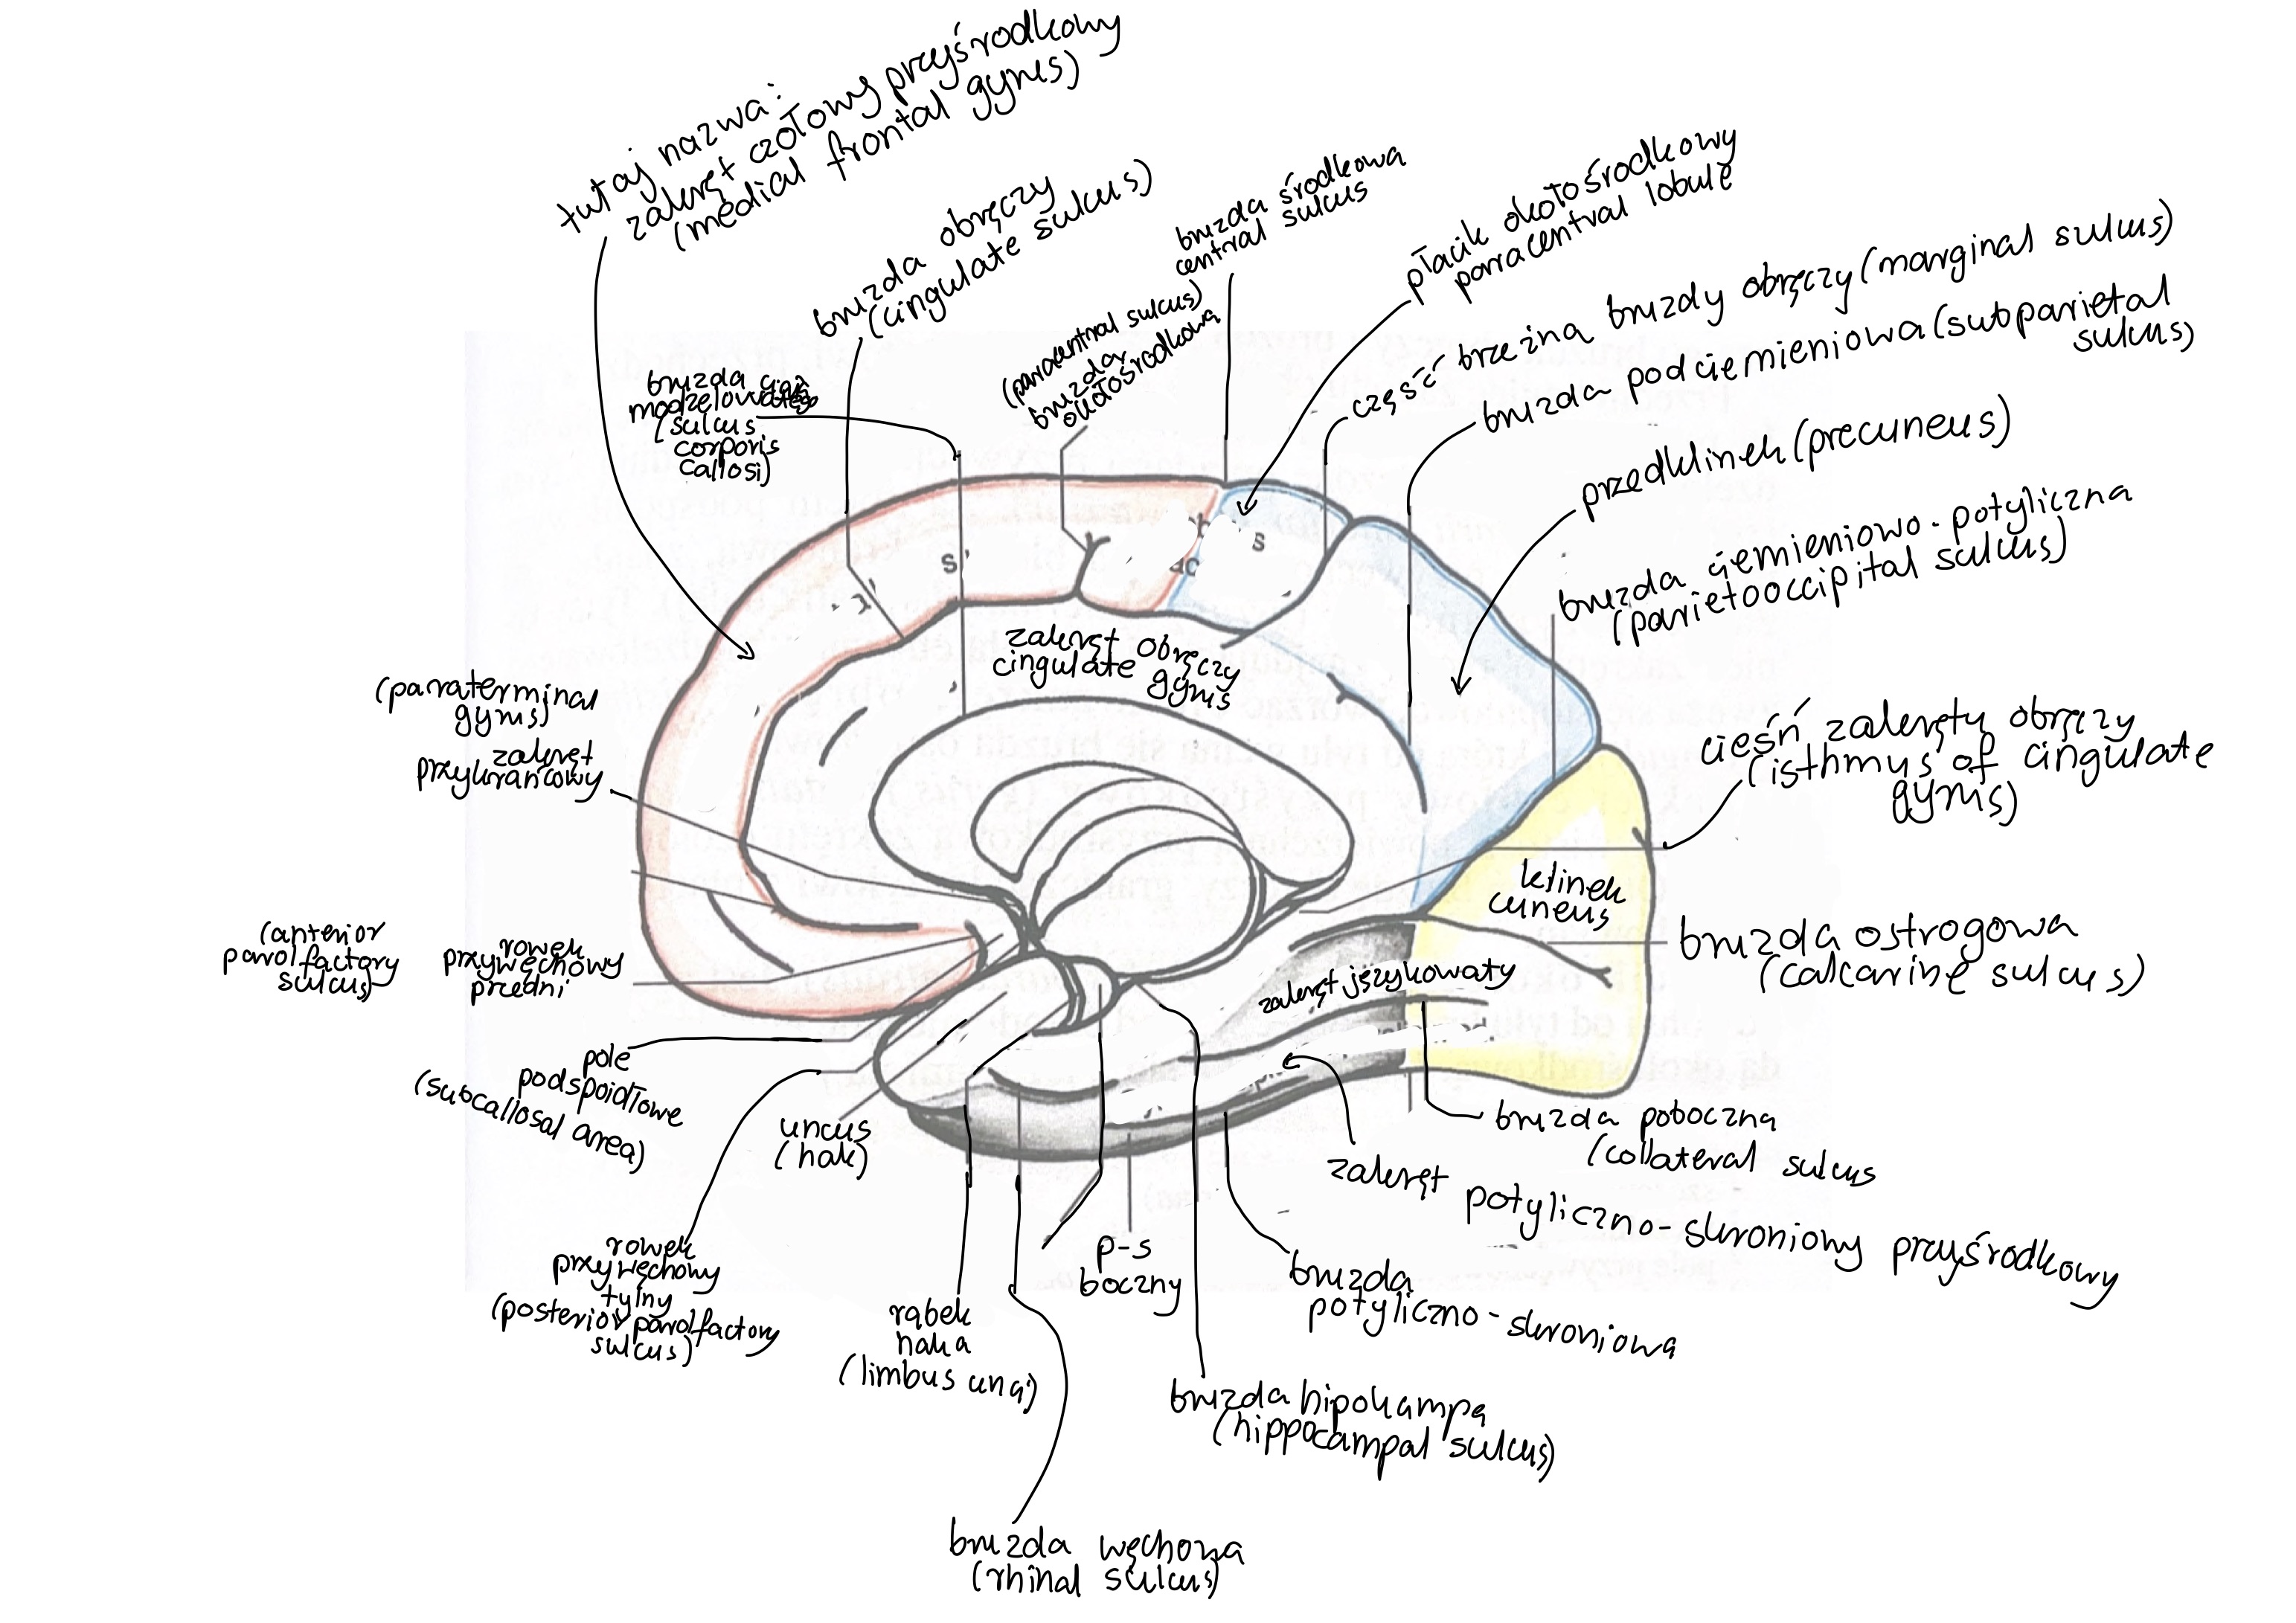 tutaj nazwa:
zakręt czołowy przyśrodkowy
(medial frontal gyrus)
bruzda obręczy
(cingulate sulcus)
bruzda środkowa
central sulcus
(paracentral sulcus)
bruzda
okołośrodkowa
płacik okołośrodkowy
paracentral lobule
część brzeżna bruzdy obręczy (marginal sulcus)
bruzda podciemieniowa (subparietal
sulcus)
przedklinek (precuneus)
bruzda ciemieniowo-potyliczna
(parietooccipital sulcus)
bruzda ciała
modzelowatego
(sulcus
corporis
callosi)
zakręt obręczy
cingulate gyrus
(paraterminal
gyrus)
zakręt
przykrańcowy
cieśń zakrętu obręczy
(isthmus of cingulate
gyrus)
klinek
cuneus
bruzda ostrogowa
(calcarine sulcus)
(anterior
parolfactory
sulcus)
rowek
przywęchowy
przedni
zakręt językowaty
pole
podspoidłowe
(subcallosal area)
uncus
(hak)
bruzda poboczna
(collateral sulcus
zakręt potyliczno-skroniowy przyśrodkowy
rowek
przywęchowy
tylny
(posterior parolfactory
sulcus)
rąbek
haka
(limbus unci)
p-s
boczny
bruzda
potyliczno-skroniowa
bruzda hipokampa
(hippocampal sulcus)
bruzda węchowa
(rhinal sulcus)